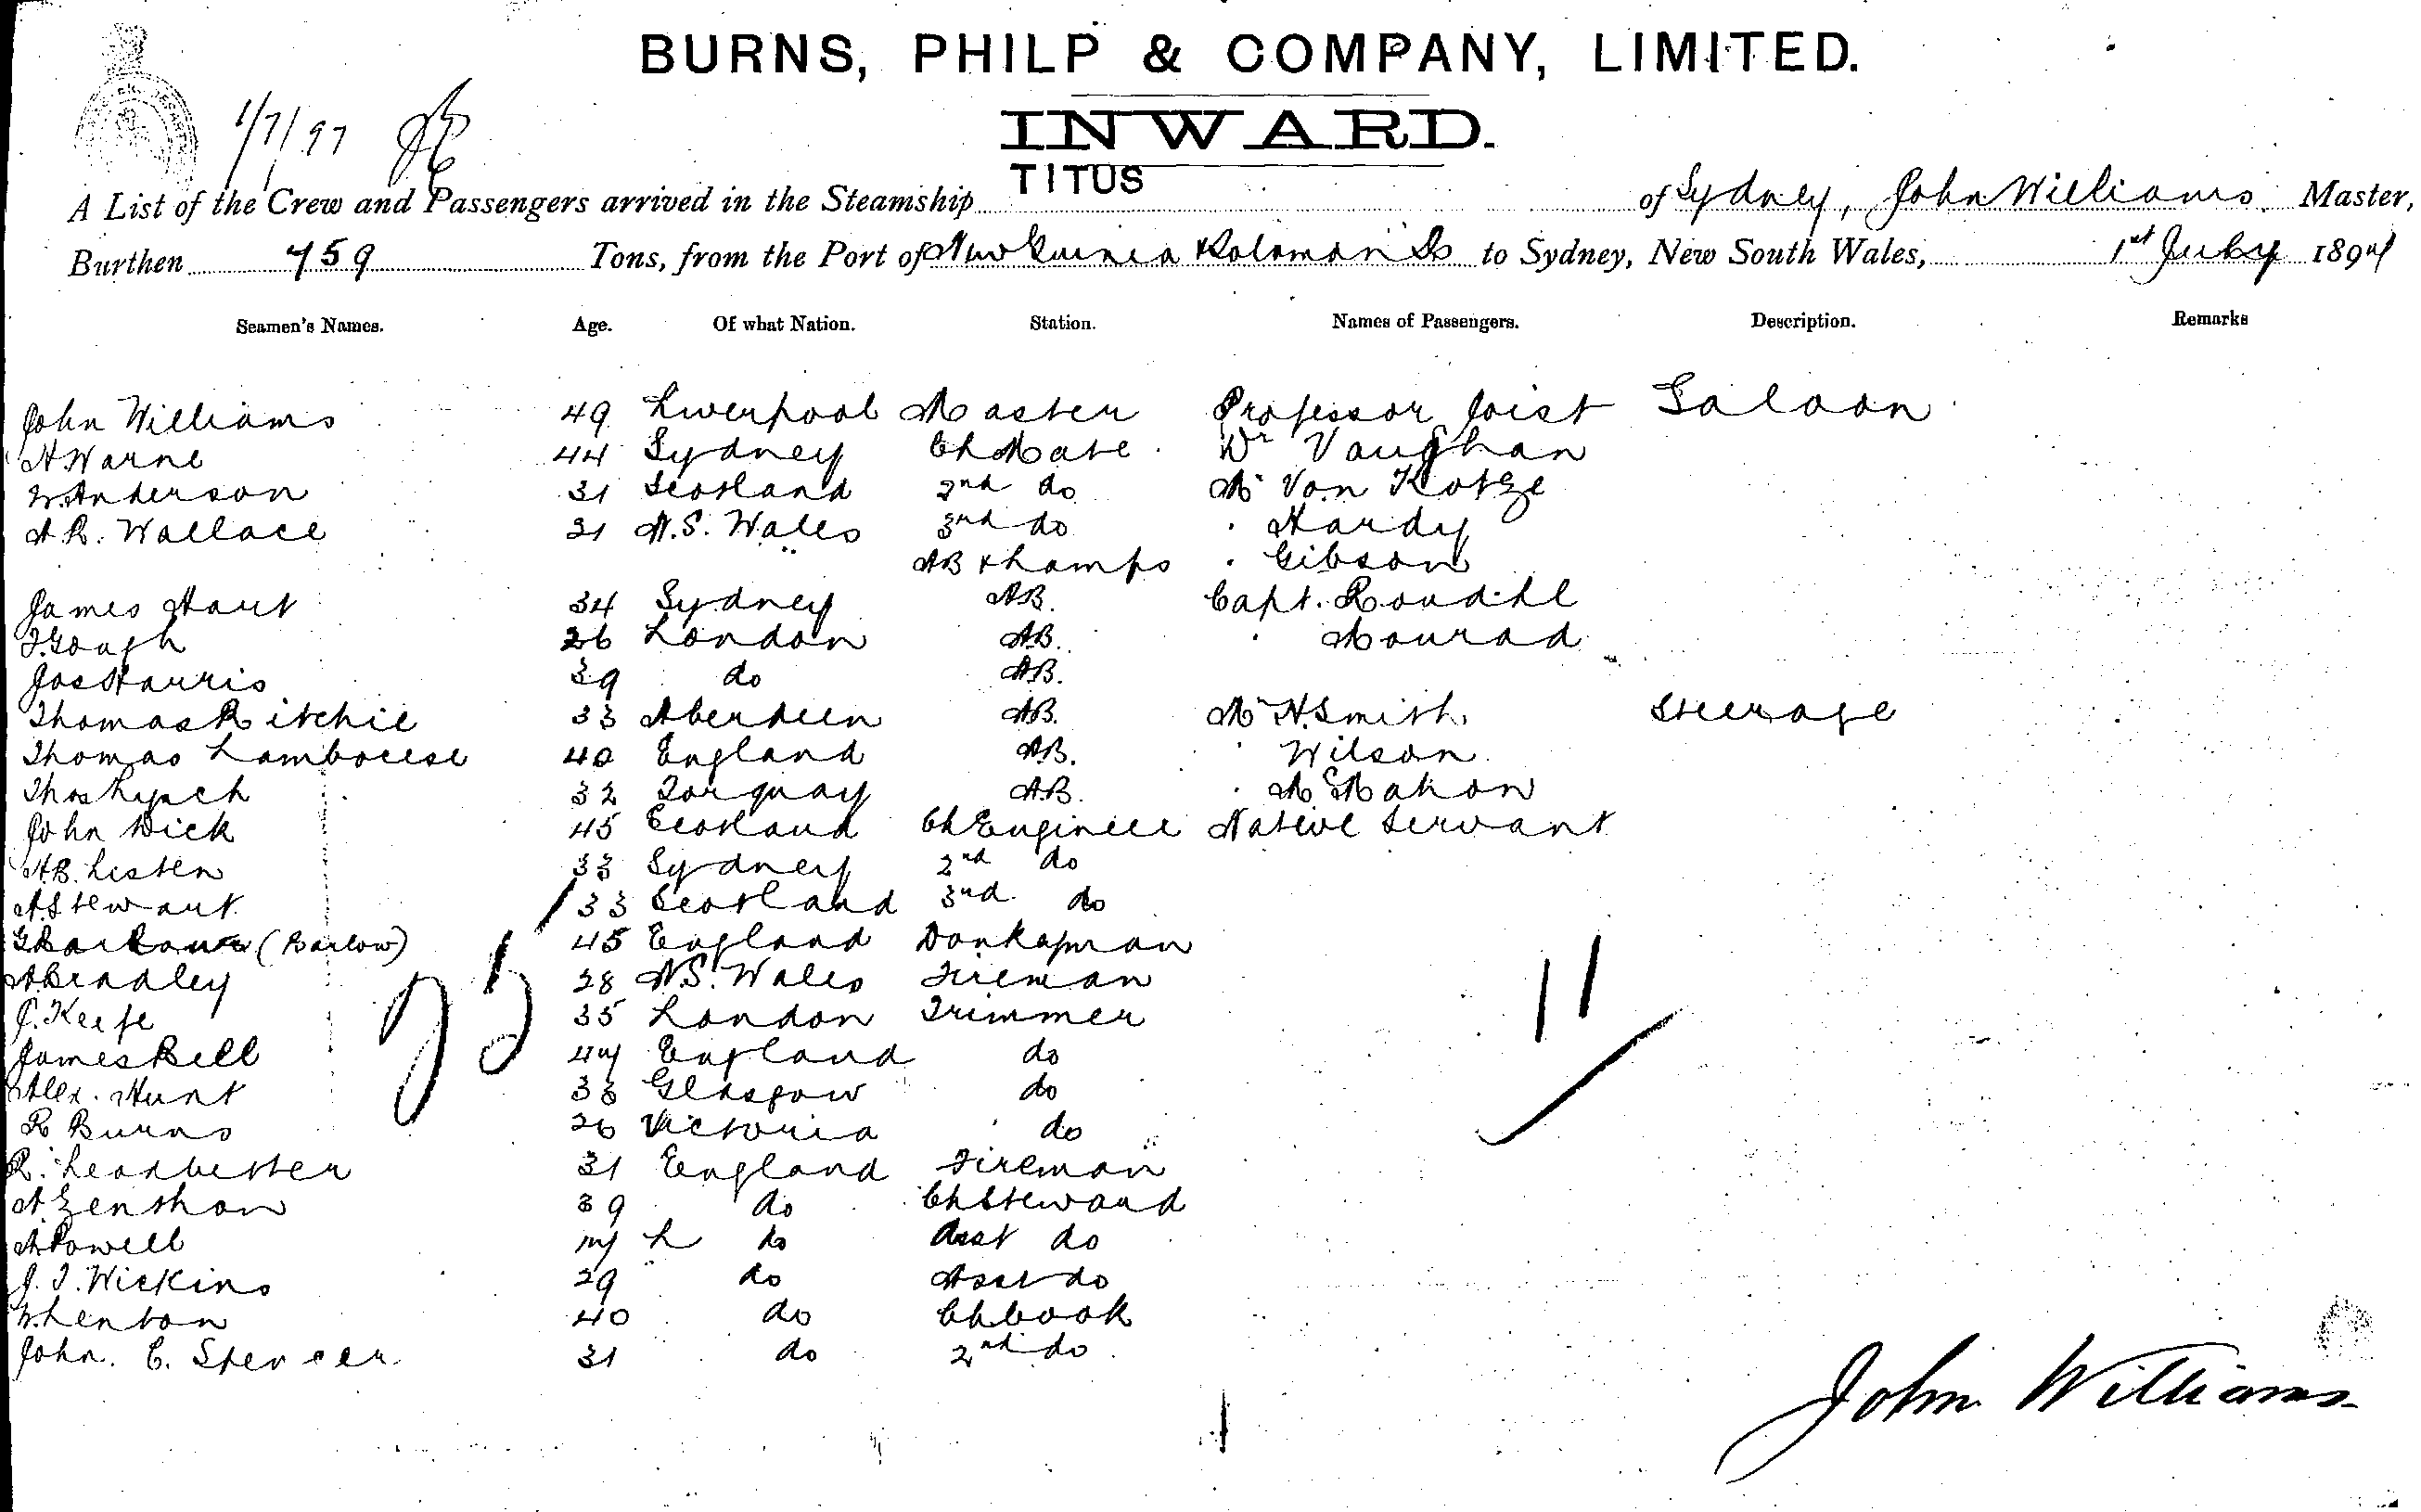 BURNS, PHILP & COMPANY, LIMITED.
INWARD.
1/7/97
A List of the Crew and Passengers arrived in the Steamship TITUS of Sydney, John Williams Master,
Burthen 759 Tons, from the Port of New Guinea & Solomon Is to Sydney, New South Wales, 1st July 1897
Seamen's Names. Age. Of what Nation. Station. Names of Passengers. Description. Remarks
John Williams 49 Liverpool Master Professor Joist Saloon
H Warne 44 Sydney Ch Mate Dr Vaughan
W. Anderson 31 Scotland 2nd do Mr Von Kotze
A R. Wallace 21 N.S. Wales 3rd do " Hardy
AB & Lamps " Gibson
James Hart 34 Sydney AB. Capt. Roudihl
J. Gough 26 London AB. " Mourad
Jas Harris 39 do AB.
Thomas Ritchie 33 Aberdeen AB. Mr H. Smith Steerage
Thomas 40 England AB. " Wilson
Thos Lynch 32 Torquay AB. " McMahon
John Dick 45 Scotland Ch Engineer Native Servant
A.B. Listen 33 Sydney 2nd do
A. Stewart 33 Scotland 3rd do
(Barlow) 45 England Donkeyman
A Bradley 28 N.S. Wales Fireman
J. Keefe 35 London Trimmer
James Bell 47 England do
Alex. Hunt 33 Glasgow do
R Burns 26 Victoria do
R. Leadbetter 31 England Fireman
39 do Ch Steward
A Powell 17 do Asst do
J. T. Wickins 29 do Asst do
W. Lenton 40 do Ch Cook
John. C. Spencer 31 do 2nd do
25
11
John Williams